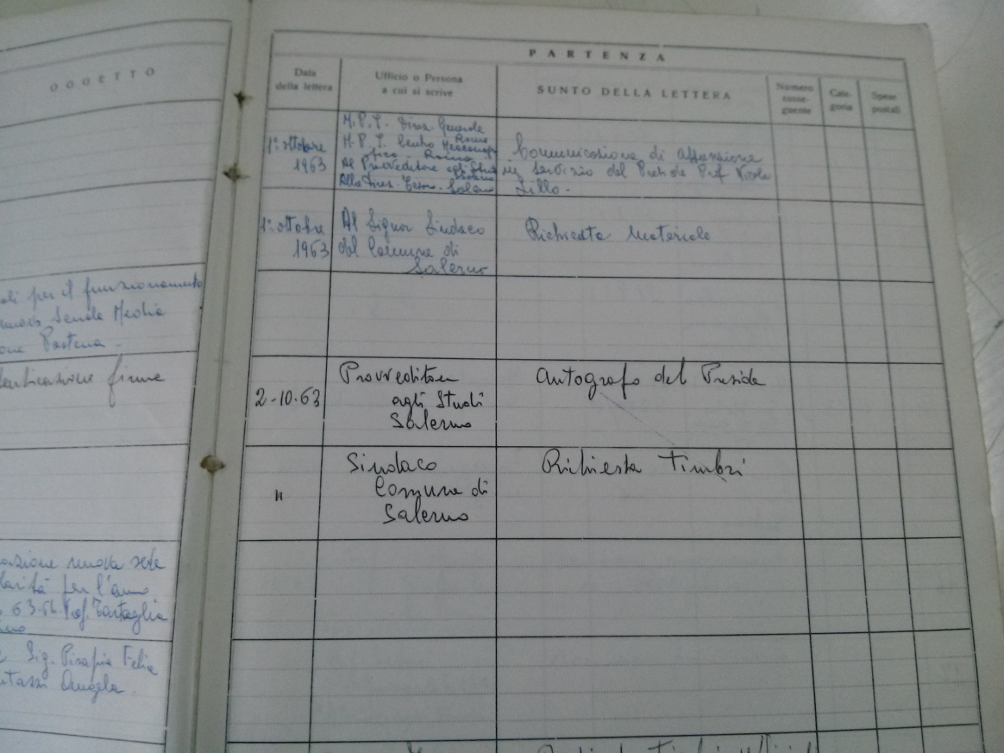 OGGETTO
ati per il funzionamento
nuova Scuola Media
one Pastena.
autenticazione firme
azione nuova sede
larità per l'anno
63-64. Prof. Tartaglia
Sig. Pisapia Felia
Angela.
PARTENZA
Data
della lettera
Ufficio o Persona
a cui si scrive
SUNTO DELLA LETTERA
Numero
susse-
guente
Cate-
goria
Spese
postali
1° ottobre
1963
M.P.I. Direz. Generale
Roma
M.P.I. Centro Meccanogra
fico - Roma
Al Provveditore agli Studi
Salerno
Alla Direz. Tesoro - Salerno
Comunicazione di assunzione
in servizio del Preside Prof. Nicola
Lillo.
1° ottobre
1963
Al Signor Sindaco
del Comune di
Salerno
Richiesta materiale
2-10-63
Provveditore
agli Studi
Salerno
Autografo del Preside
"
Sindaco
Comune di
Salerno
Richiesta Timbri